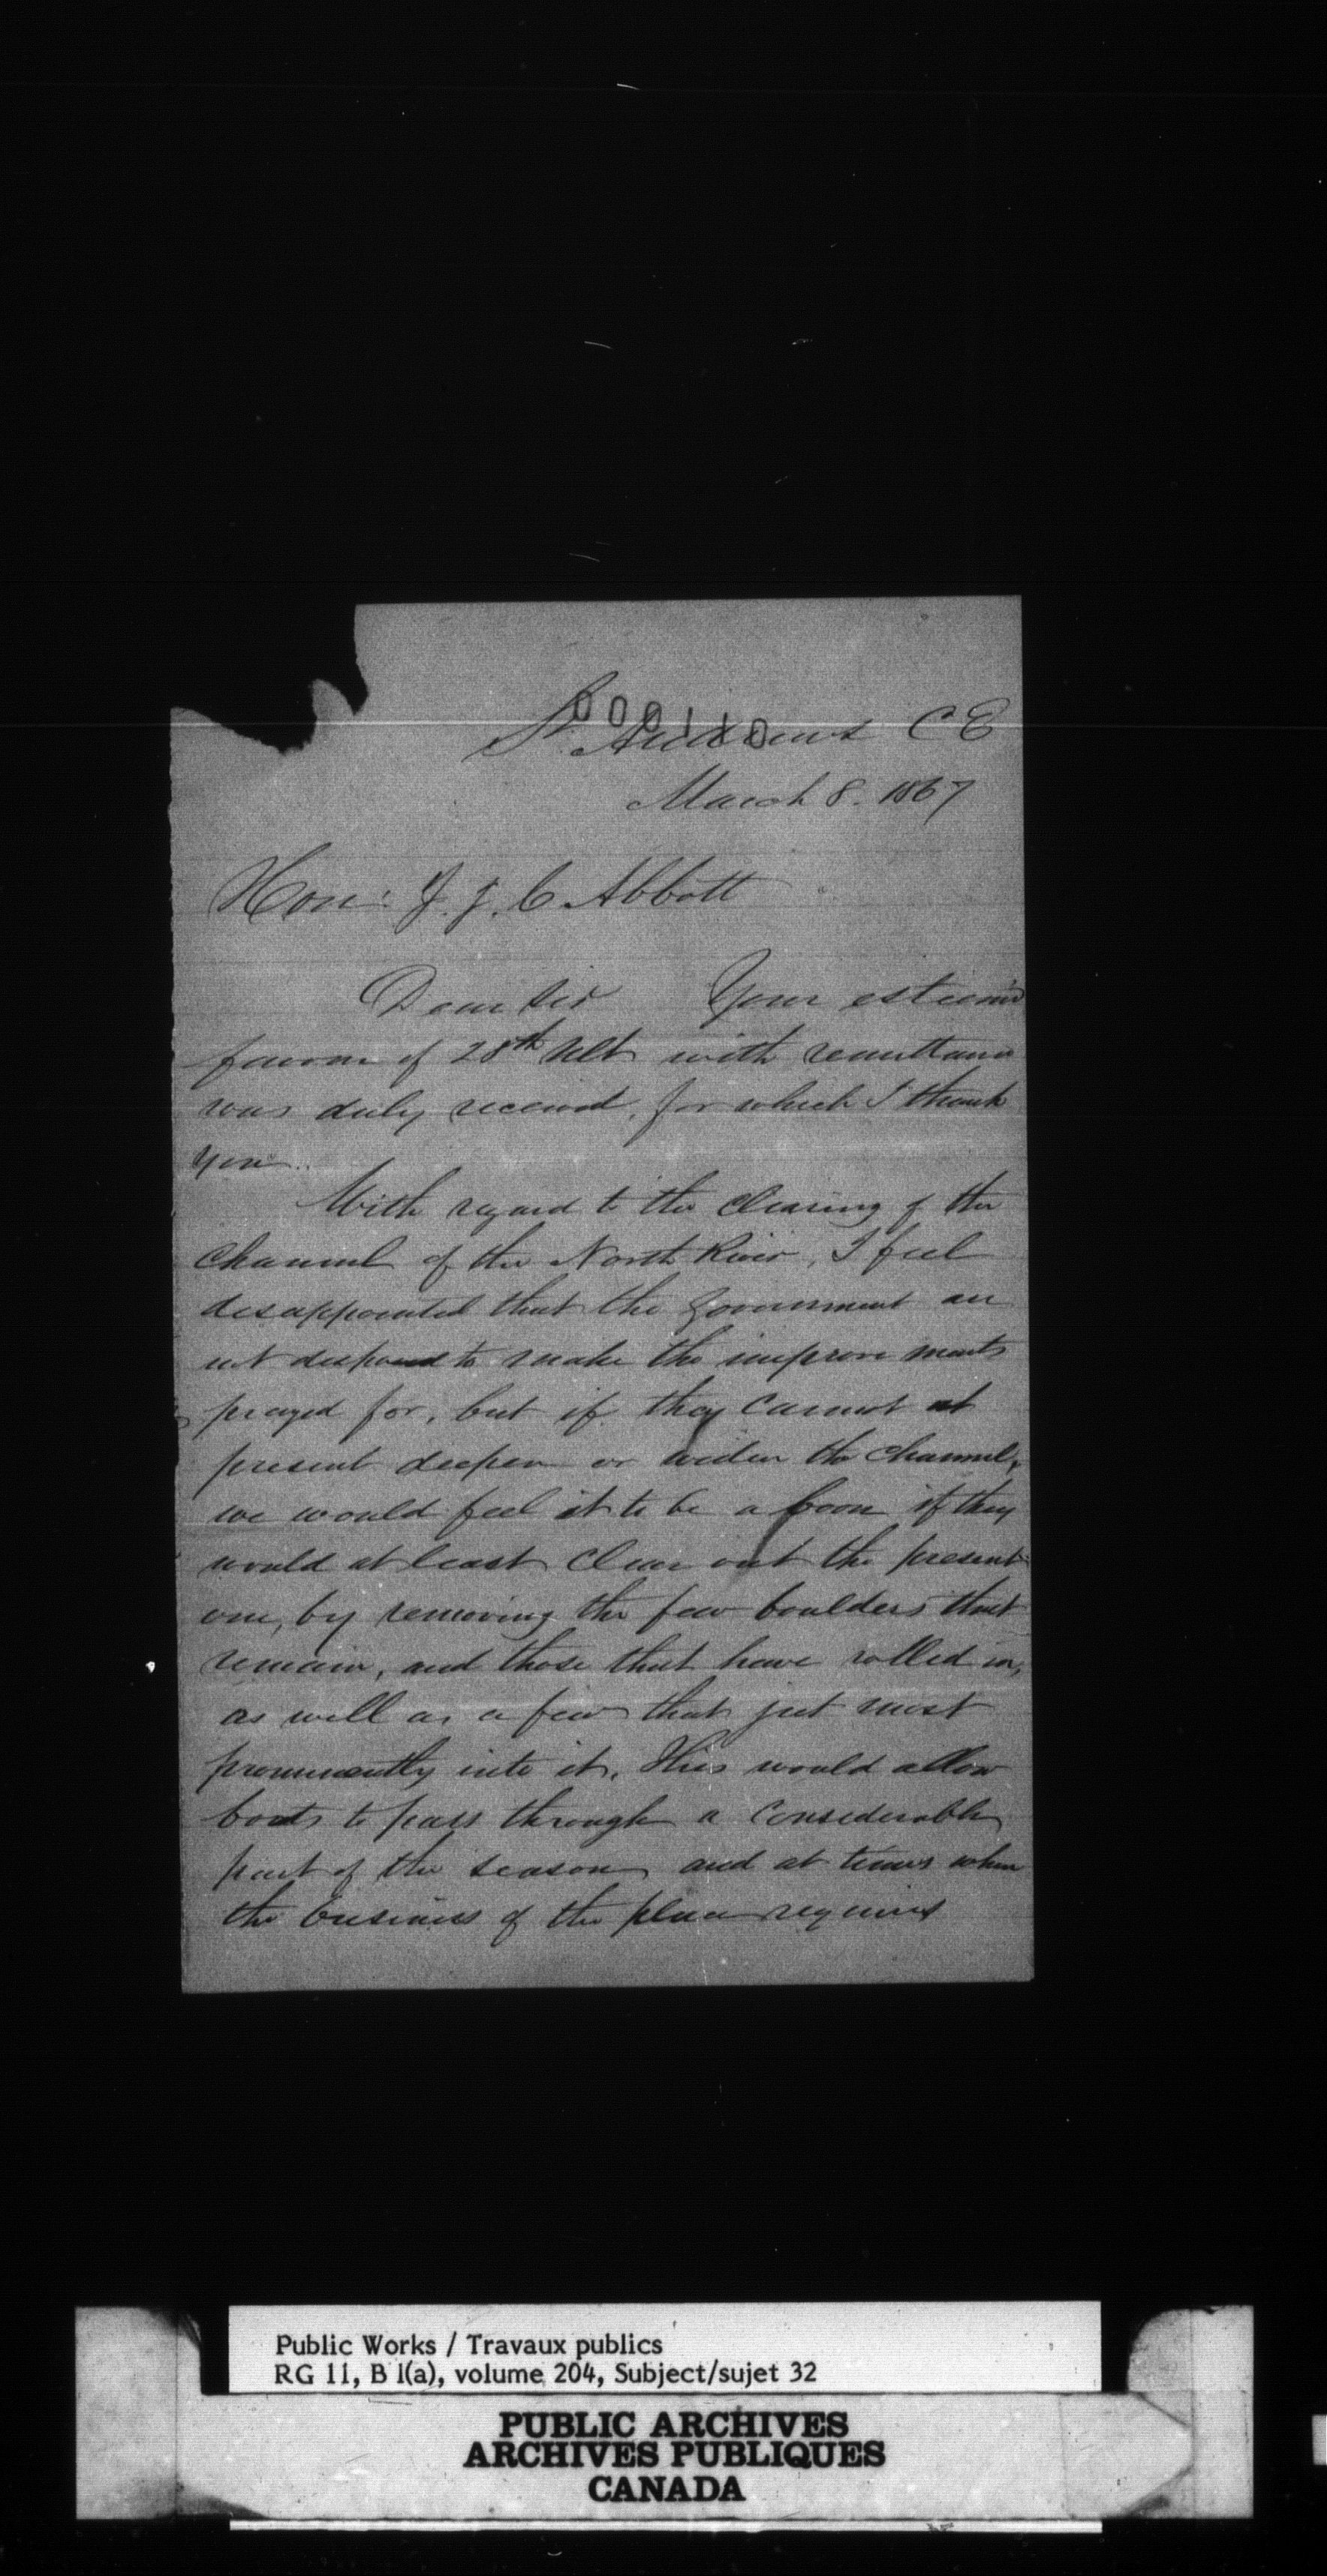 000110
St. Andrews C E
March 8. 1867
Hon: J. J. C Abbott
Dear Sir Your esteem'd
favour of 28th Ult with remittance
was duly received, for which I thank
you.
With regard to the clearing of the
Channel of the North River, I feel
disappointed that the Government are
not disposed to make the improvements
prayed for, but if they cannot at
present deepen or widen the Channel,
we would feel it to be a boon if they
would at least clear out the present
one, by removing the few boulders that
remain, and those that have rolled in,
as well as a few that jut most
prominently into it. This would allow
boats to pass through a considerable
part of the season and at times when
the business of the place requires
Public Works / Travaux publics
RG 11, B 1(a), volume 204, Subject/sujet 32
PUBLIC ARCHIVES
ARCHIVES PUBLIQUES
CANADA